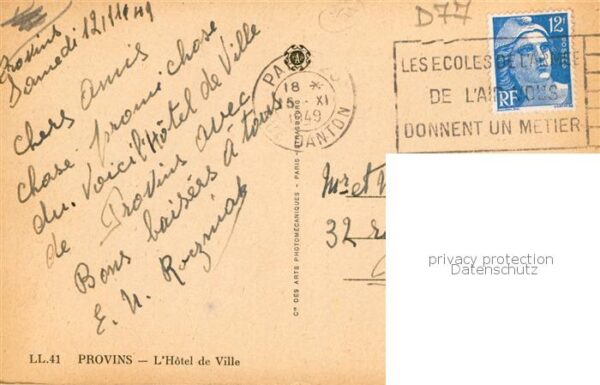 Provins
Samedi 12/11/49
Chers Amis
chose promi chose
du. Voici l'Hôtel de Ville
de Provins avec
Bons baisers à tous
E. N.
LL.41 PROVINS — L'Hôtel de Ville
Cie DES ARTS PHOTOMÉCANIQUES - PARIS - STRASBOURG
D77
18 *
15 - XI
1949
DANTON
LES ECOLES DE L'ARMEE
DE L'AIR VOUS
DONNENT UN METIER
12F
POSTES
RF
Mr et
32
privacy protection
Datenschutz